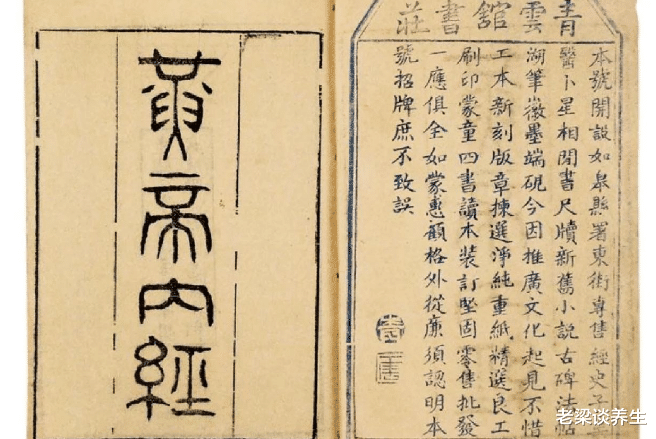 青雲舘書莊
本號開設如皋縣署東街專售經史子
醫卜星相閒書尺牘新舊小說古碑法帖
湖筆徽墨端硯今因推廣文化起見不惜
工本新刻版章揀選淨純重紙精選良工
刷印蒙童四書讀本裝訂堅固零售批發
一應俱全如蒙惠顧格外從廉須認明本
號招牌庶不致誤
黃帝內經
老梁谈养生